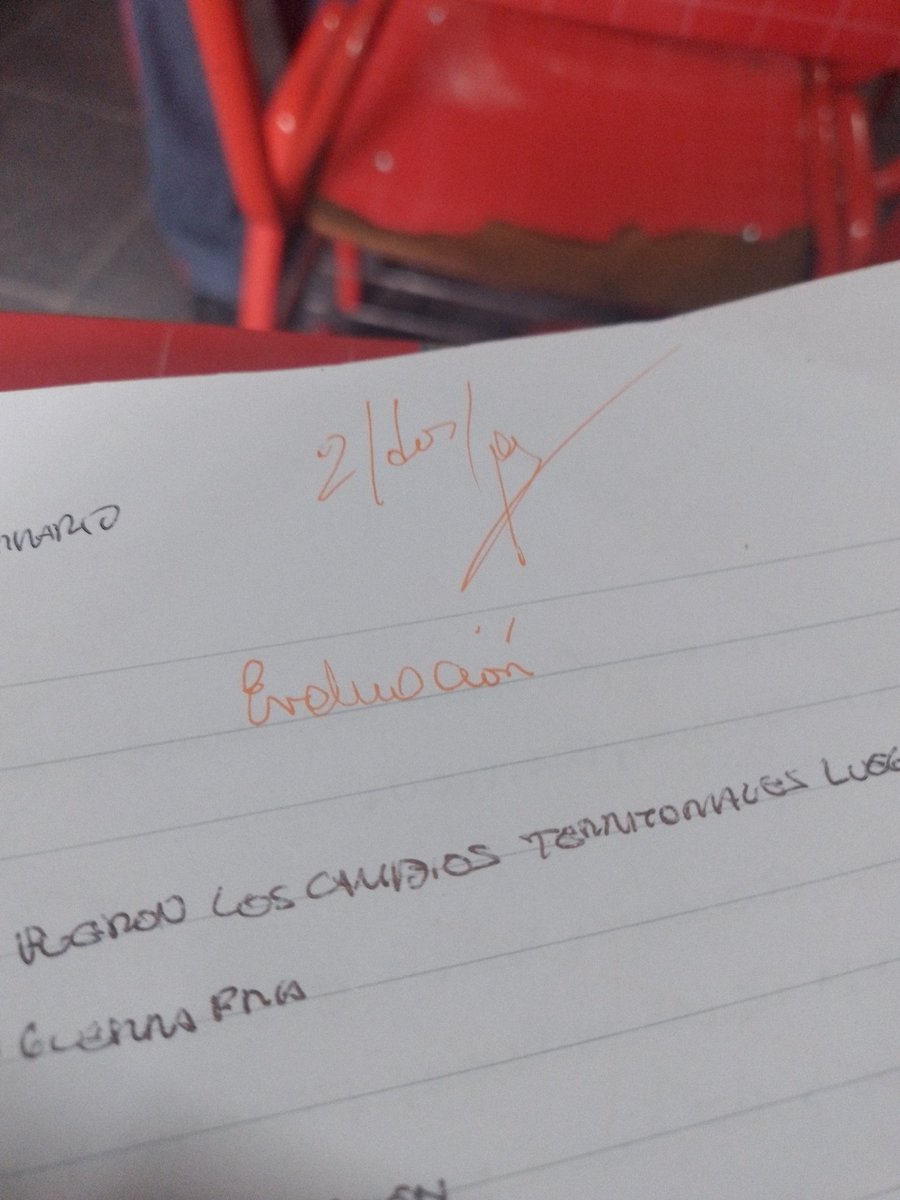 2/dos/
Evaluación
FUERON LOS CAMBIOS TERRITORIALES LUEG
GUERRA FRIA
EN